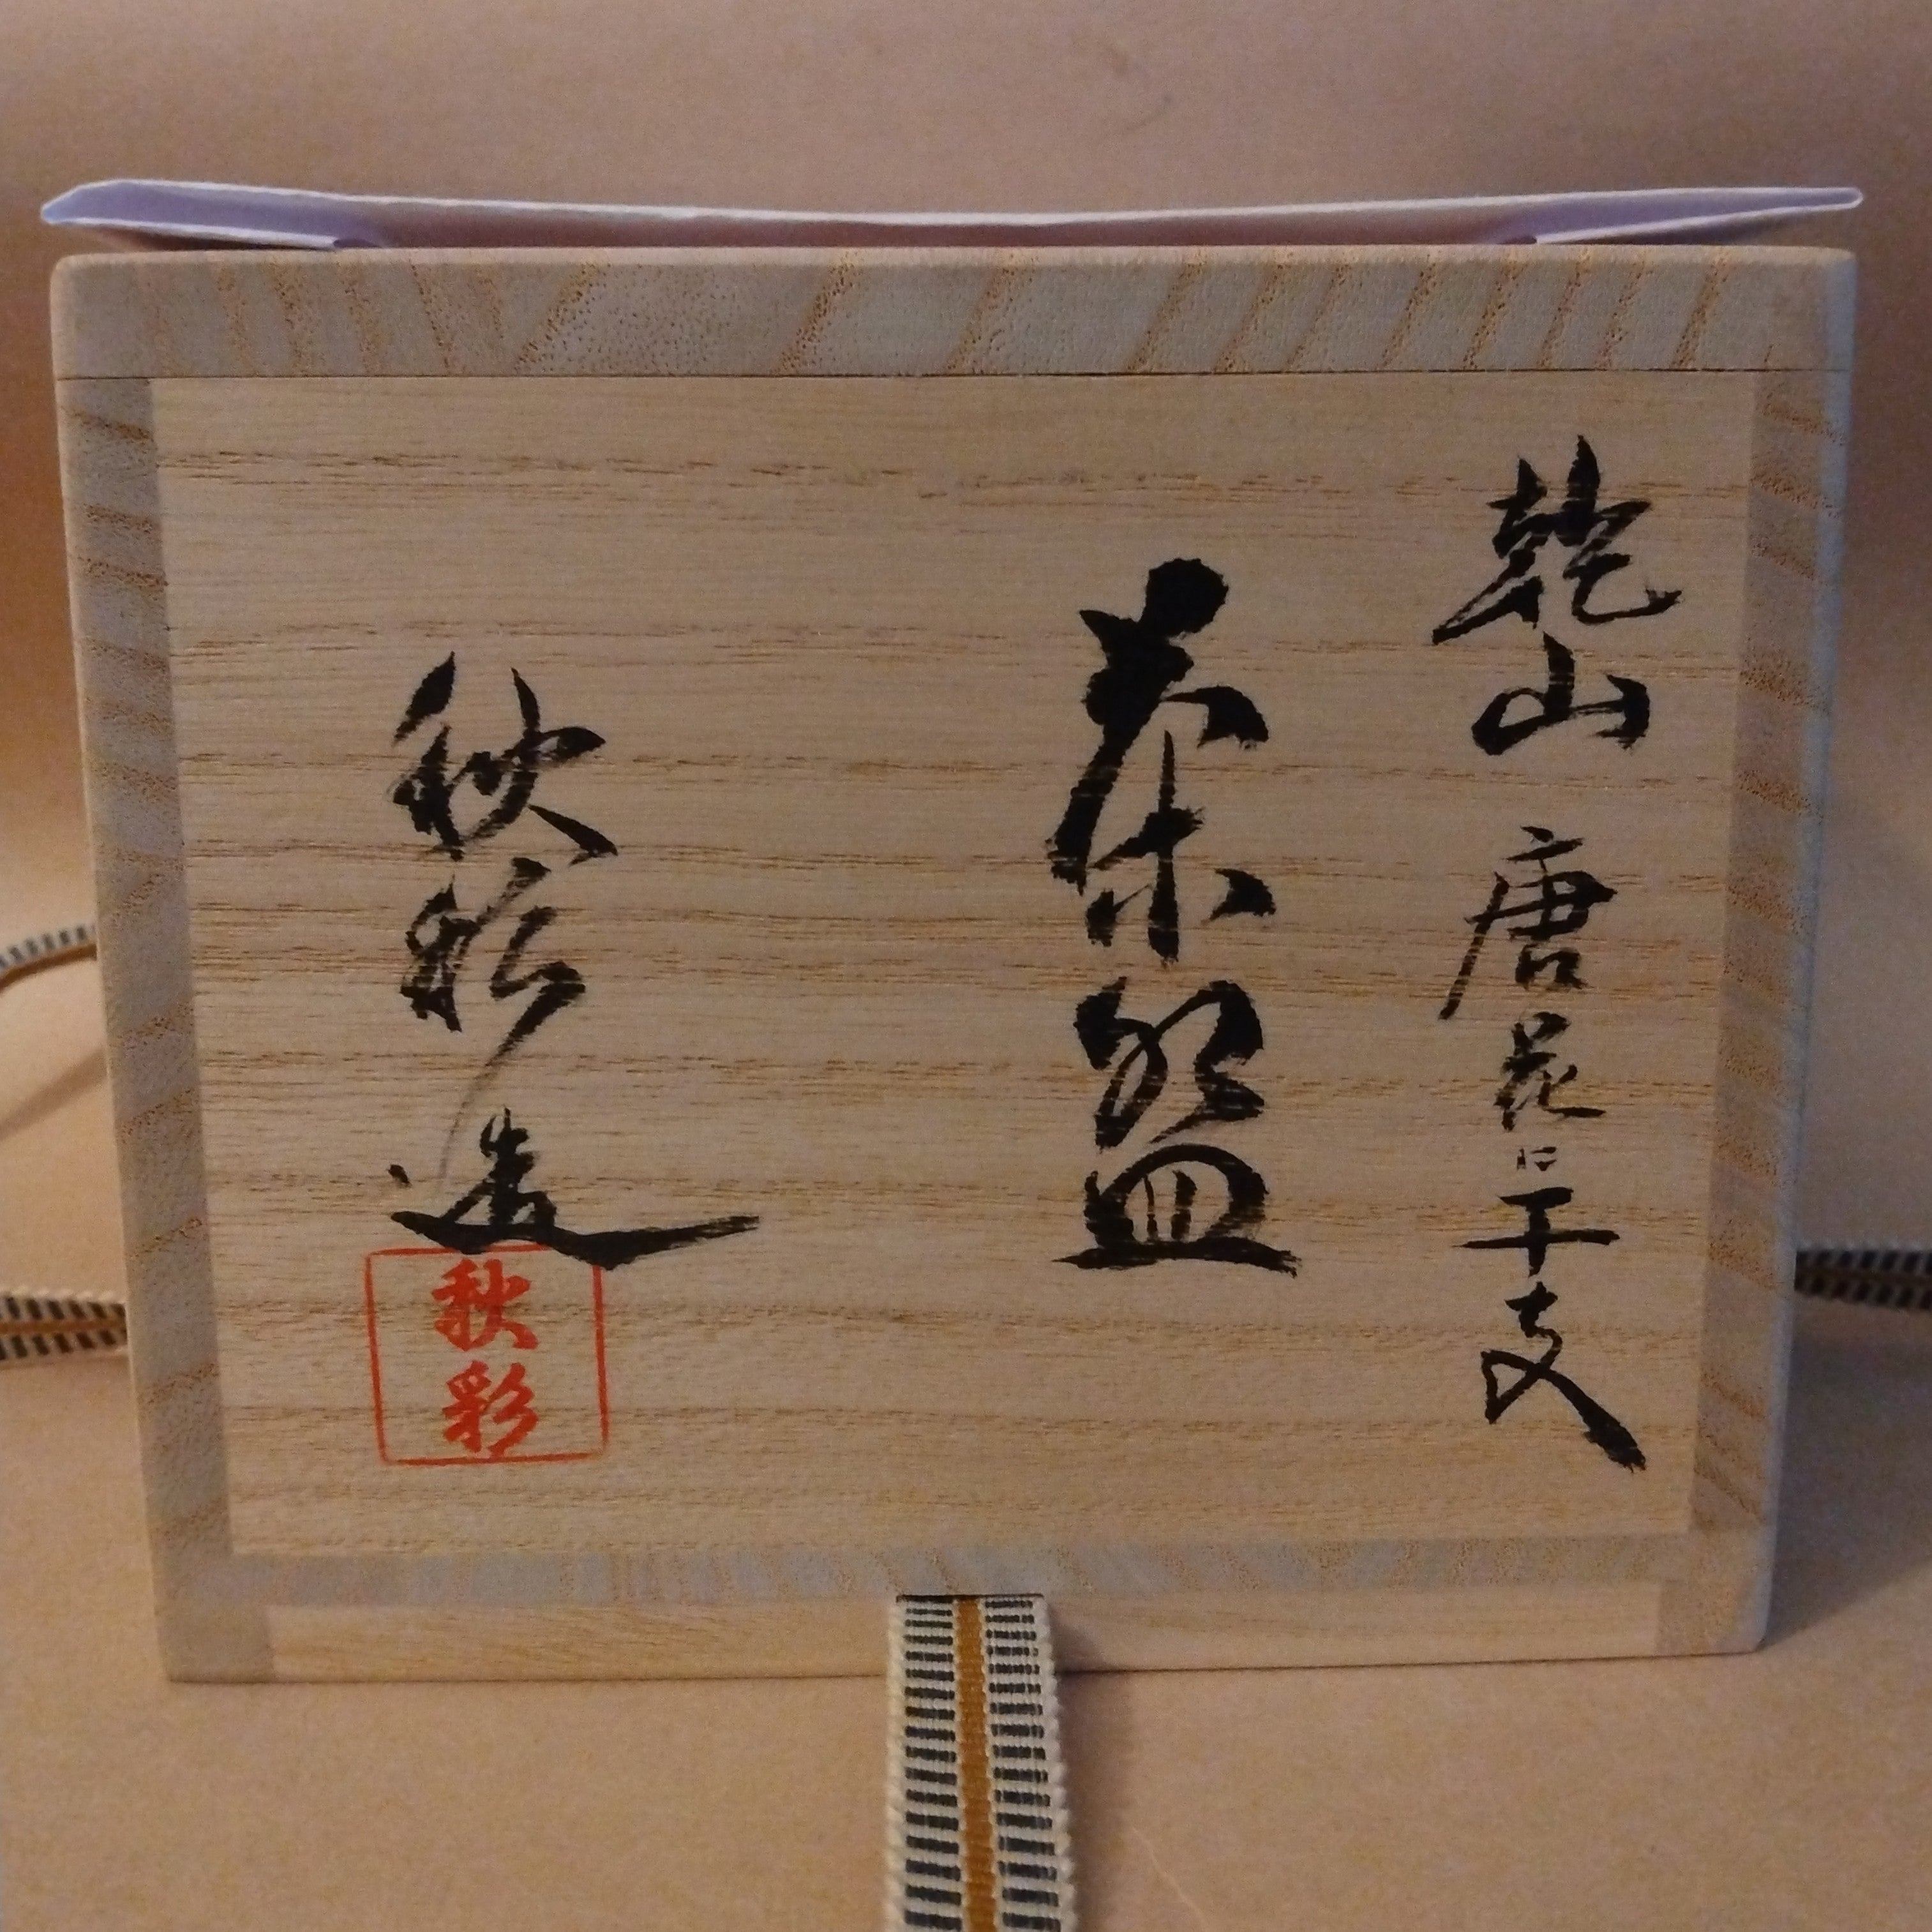 乾山 唐花に干支
茶盌
秋彩造
秋彩